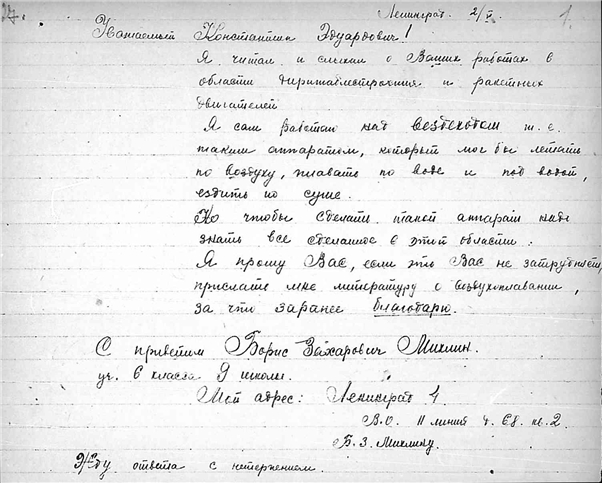 Ленинград. 2/V. 1.
Уважаемый Константин Эдуардович!
Я читал и слыхал о Ваших работах в
области дирижаблестроения и ракетных
двигателей
Я сам работаю над вездеходом т. е.
таким аппаратом, который мог бы летать
по воздуху, плавать по воде и под водой,
ездить по суше.
Но чтобы сделать такой аппарат надо
знать все сделанное в этой области.
Я прошу Вас, если это Вас не затруднит,
прислать мне литературу о воздухоплавании,
за что заранее благодарю.
С приветом Борис Захарович Михлин.
уч. 6 класса 9 школы.
Мой адрес: Ленинград 4
В.О. 11 линия д. 68. кв. 2.
Б. З. Михлину.
Жду ответа с нетерпением.